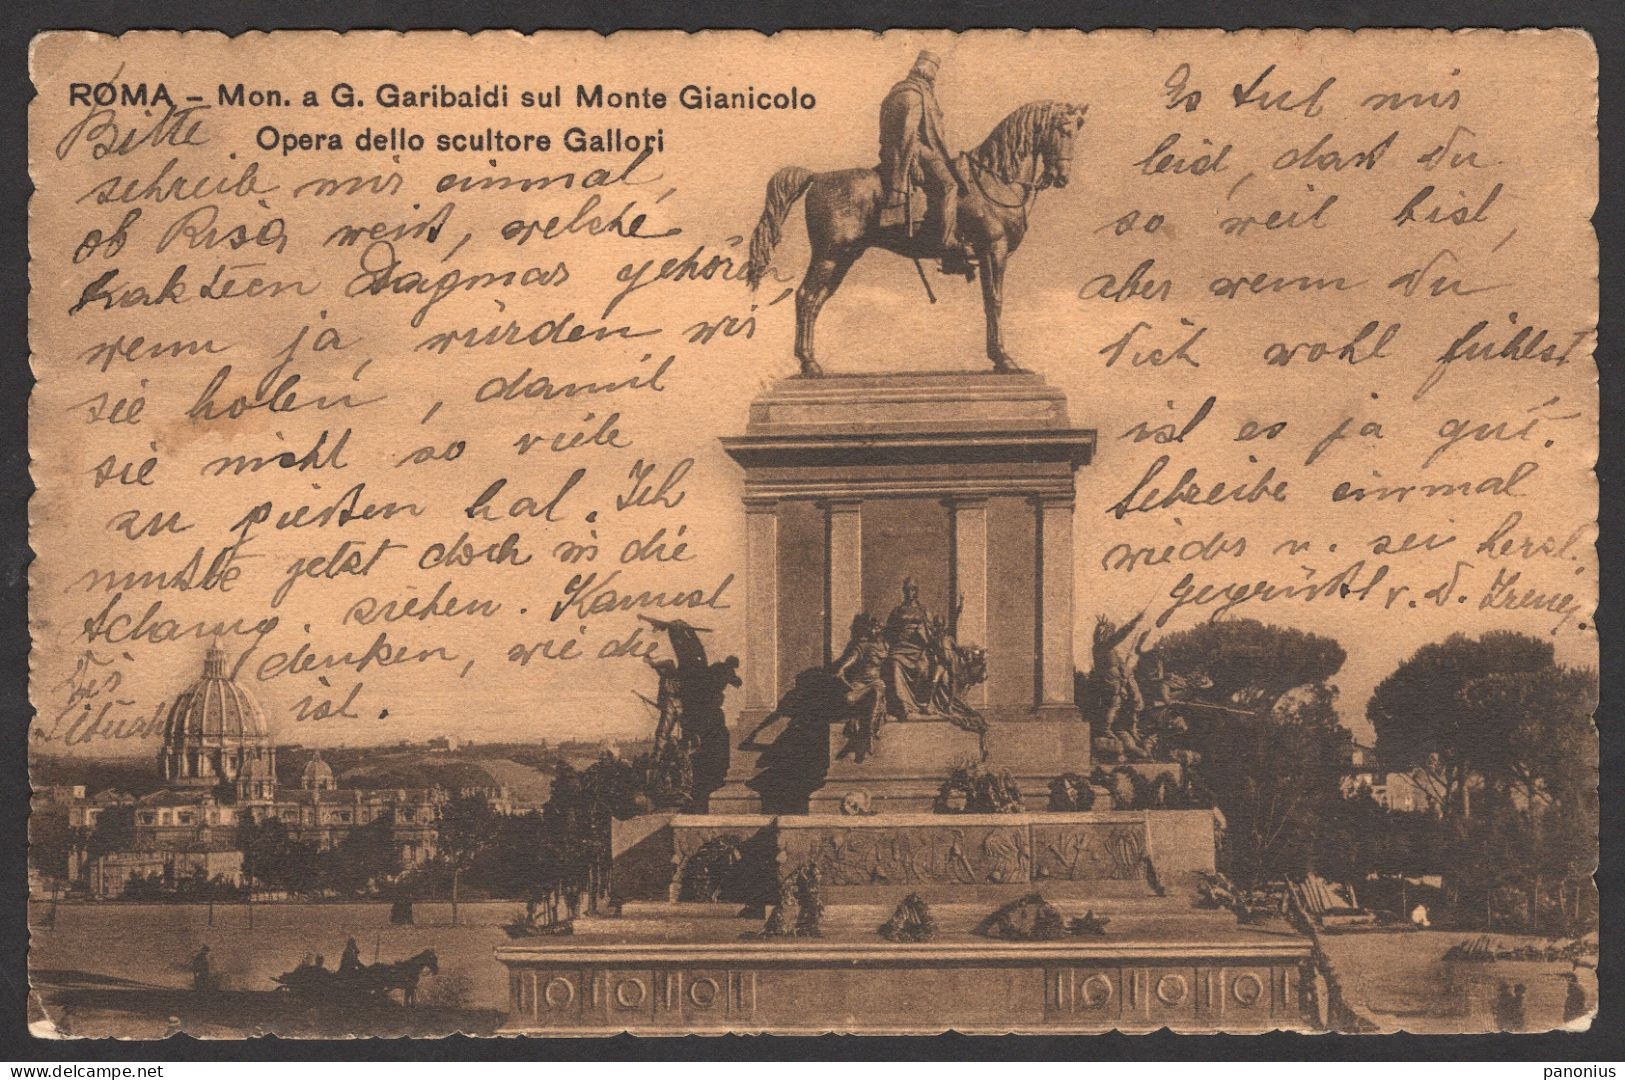 ROMA – Mon. a G. Garibaldi sul Monte Gianicolo
Opera dello scultore Gallori
Bitte
schreibe mir einmal,
ob Risa weißt, welche
Kakteen Dagmar gehören,
wenn ja, würden wir
sie holen, damit
sie nicht so viele
zu gießen hat. Ich
mußte jetzt doch in die
ziehen. Kannst
Dir denken, wie die
ist.
Es tut mir
leid, daß Du
so weit bist,
aber wenn Du
Dich wohl fühlst
ist es ja gut.
Schreibe einmal
wieder u. sei herzl.
gegrüßt v. D. Irene
panonius